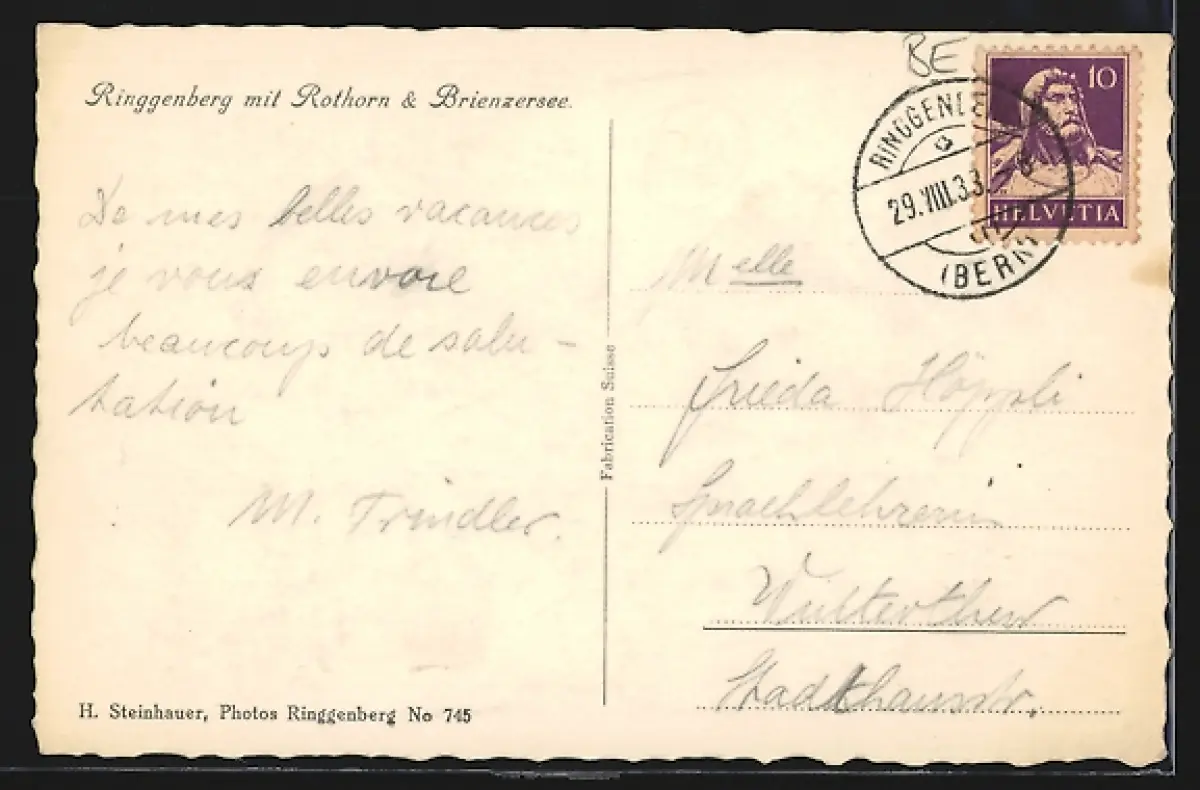 Ringgenberg mit Rothorn & Brienzersee.
De mes belles vacances
je vous envoie
beaucoup de salu-
tation
M. Trindler.
H. Steinhauer, Photos Ringgenberg No 745
Fabrication Suisse
BE
10
HELVETIA
RINGGENBE
29.VIII.33.
(BERN)
Melle
Frieda Höppli
Sprachlehrerin
Winterthur
Stadthausstr.